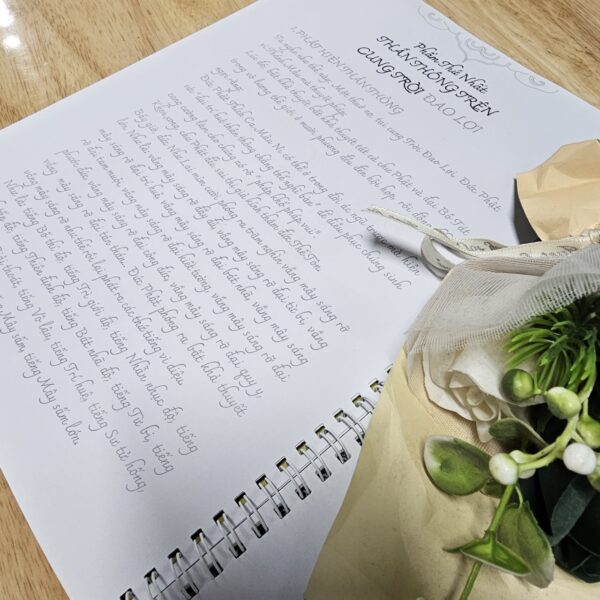 Phẩm Thứ Nhất
THẦN THÔNG TRÊN
CUNG TRỜI ĐAO LỢI
1. PHẬT HIỆN THẦN THÔNG
Ta nghe như thế này: Một thuở nọ, tại cung Trời Đao Lợi, Đức Phật
vì Thánh Mẫu mà thuyết pháp.
Lúc đó, bất khả thuyết bất khả thuyết tất cả chư Phật và đại Bồ Tát
trong vô lượng thế giới ở mười phương đều đến hội họp, rồi
Đức Phật Thích Ca Mâu Ni có thể ở trong đời ác ngũ trược mà hiện
sức "đại trí huệ thần thông chẳng thể nghĩ bàn" để điều phục chúng sinh
cang cường làm cho chúng nó rõ "pháp khổ pháp vui".
Khen xong, chư Phật đều sai thị giả kính thăm đức Thế Tôn.
Bấy giờ, đức Như Lai mỉm cười phóng ra trăm nghìn vầng mây sáng rỡ
lớn. Như là: vầng mây sáng rỡ đầy đủ, vầng mây sáng rỡ đại từ bi, vầng
mây sáng rỡ đại trí huệ, vầng mây sáng rỡ đại bát nhã, vầng mây sáng
rỡ đại tam muội, vầng mây sáng rỡ đại kiết tường, vầng mây sáng rỡ đại
phước đức, vầng mây sáng rỡ đại công đức, vầng mây sáng rỡ đại quy y,
vầng mây sáng rỡ đại tán thán. Đức Phật phóng ra bất khả thuyết
vầng mây sáng rỡ như thế rồi lại phát ra các thứ tiếng vi diệu.
Như là: tiếng Bố thí độ, tiếng Trì giới độ, tiếng Nhẫn nhục độ, tiếng
độ, tiếng Thiền định độ, tiếng Bát nhã độ, tiếng Từ bi, tiếng
tiếng Vô lậu, tiếng Trí huệ, tiếng Sư tử hống,
tiếng Mây sấm, tiếng Mây sấm lớn.